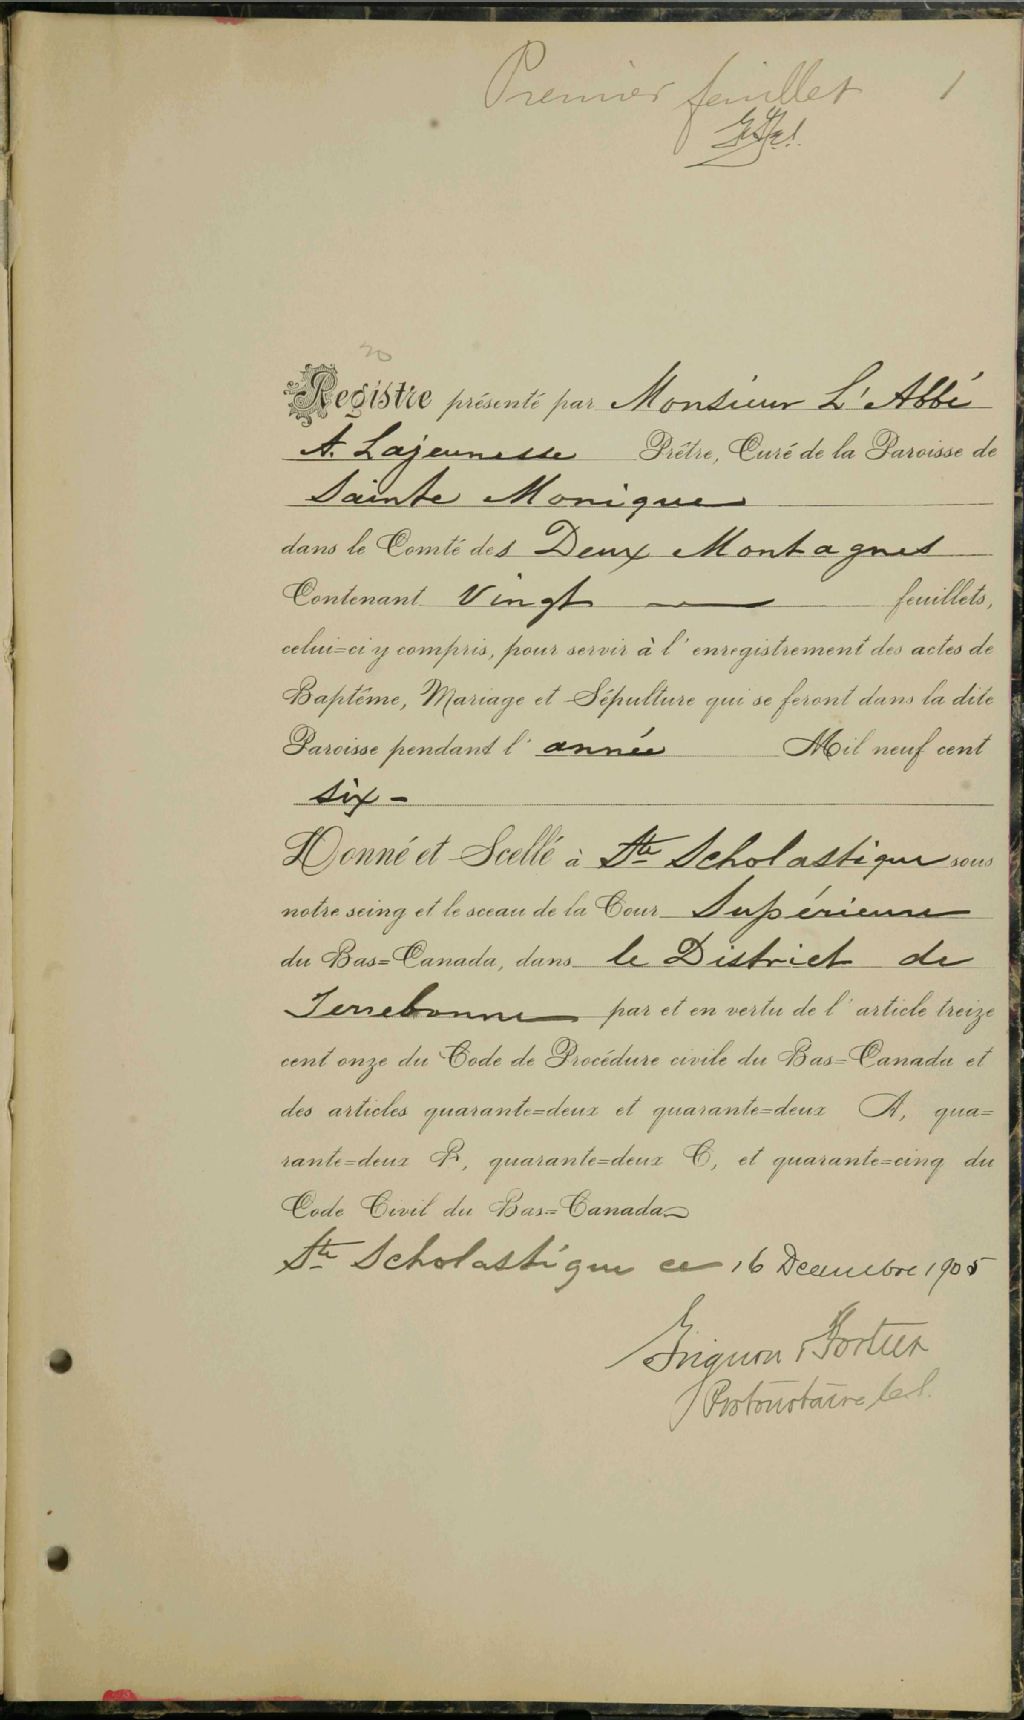 Premier feuillet 1
20
Registre présenté par Monsieur L'Abbé
A. Lajeunesse Prêtre, Curé de la Paroisse de
Sainte Monique
dans le Comté des Deux Montagnes
Contenant Vingt feuillets,
celui=ci y compris, pour servir à l'enregistrement des actes de
Baptême, Mariage et Sépulture qui se feront dans la dite
Paroisse pendant l'année Mil neuf cent
six -
Donné et Scellé à Ste Scholastique sous
notre seing et le sceau de la Cour Supérieure
du Bas=Canada, dans le District de
Terrebonne par et en vertu de l'article treize
cent onze du Code de Procédure civile du Bas=Canada et
des articles quarante=deux et quarante=deux A, qua=
rante=deux B, quarante=deux C, et quarante=cinq du
Code Civil du Bas=Canada
Ste Scholastique ce 16 Decembre 1905
Grignon & Fortier
Protonotaire